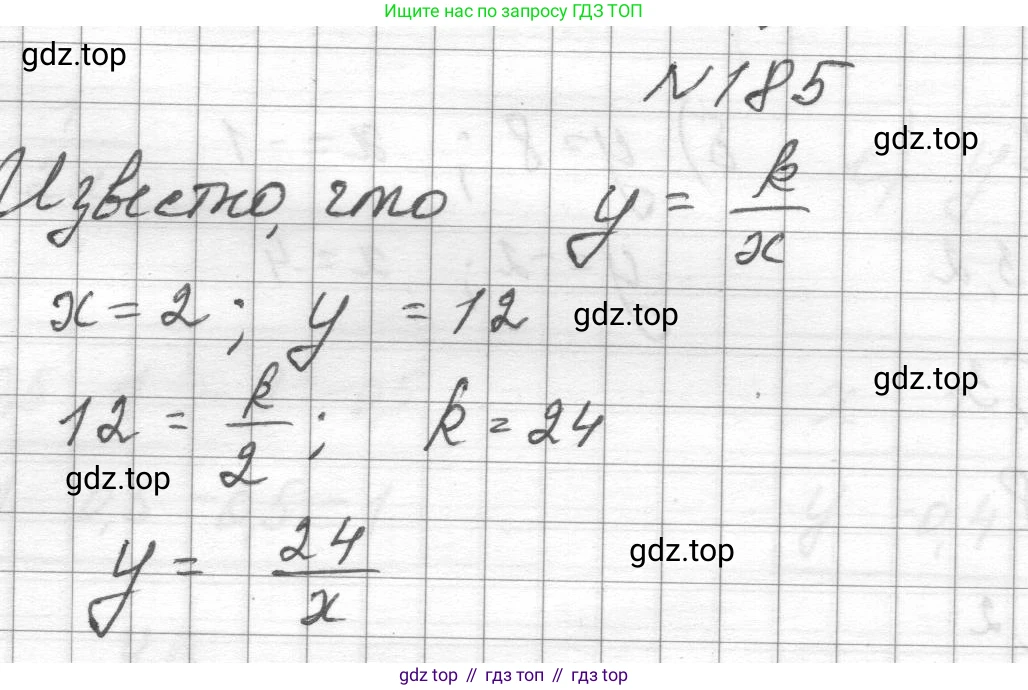 Ищите нас по запросу ГДЗ ТОП
gdz.top
N185
gdz.top
Известно, что y = k/x
x = 2; y = 12
gdz.top
gdz.top
12 = k/2; k = 24
gdz.top
gdz.top
y = 24/x
gdz.top // гдз топ // gdz.top